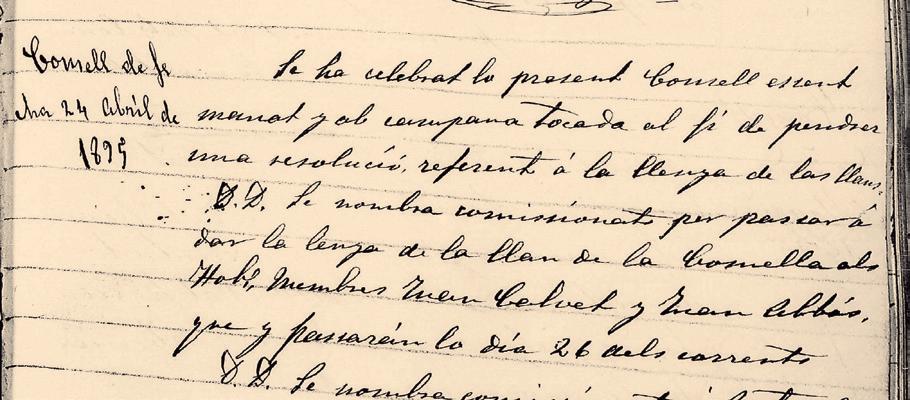 Consell de fe
cha 24 Abril de
1895
Se ha celebrat lo present Consell essent
manat y ab campana tocada al fi de pendrer
una resolució, referent á la llenya de las llans.
D.D. Se nombra comissionats per passar á
dar la lenya de la llan de la Comella als
Hble, Membres Juan Calvet y Juan Albós,
que y passarán lo día 26 dels corrents
D.D. Se nombra